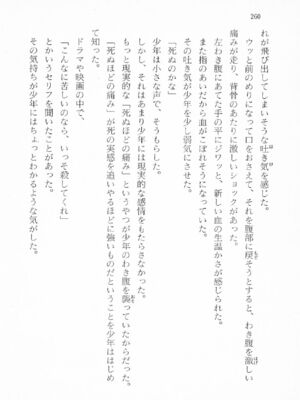 260
れが飛び出してしまいそうな吐き気を感じた。
ウッと前のめりになって口をおさえて、それを腹部に戻そうとすると、わき腹を激しい
痛みが走り、背骨のあたりに激しいショックがあった。
左わき腹にあてた手の平にジワッと、新しい血の生温かさが感じられた。
また指のあいだから血がこぼれそうになっていた。
その吐き気が少年を少し弱気にさせた。
「死ぬのかな」
少年は小さな声で、そうもらした。
しかし、それはあまり少年には現実的な感情をもたらさなかった。
もっと現実的な「死ぬほどの痛み」というやつが少年のわき腹を襲っていたからだった。
「死ぬほどの痛み」が死の実感を追いやるほどに強いものだということを少年ははじめ
て知った。
ドラマや映画の中で、
「こんなに苦しいのなら、いっそ殺してくれ」
というセリフを聞いたことがあった。
その気持ちが少年にはちょっとわかるような気がした。